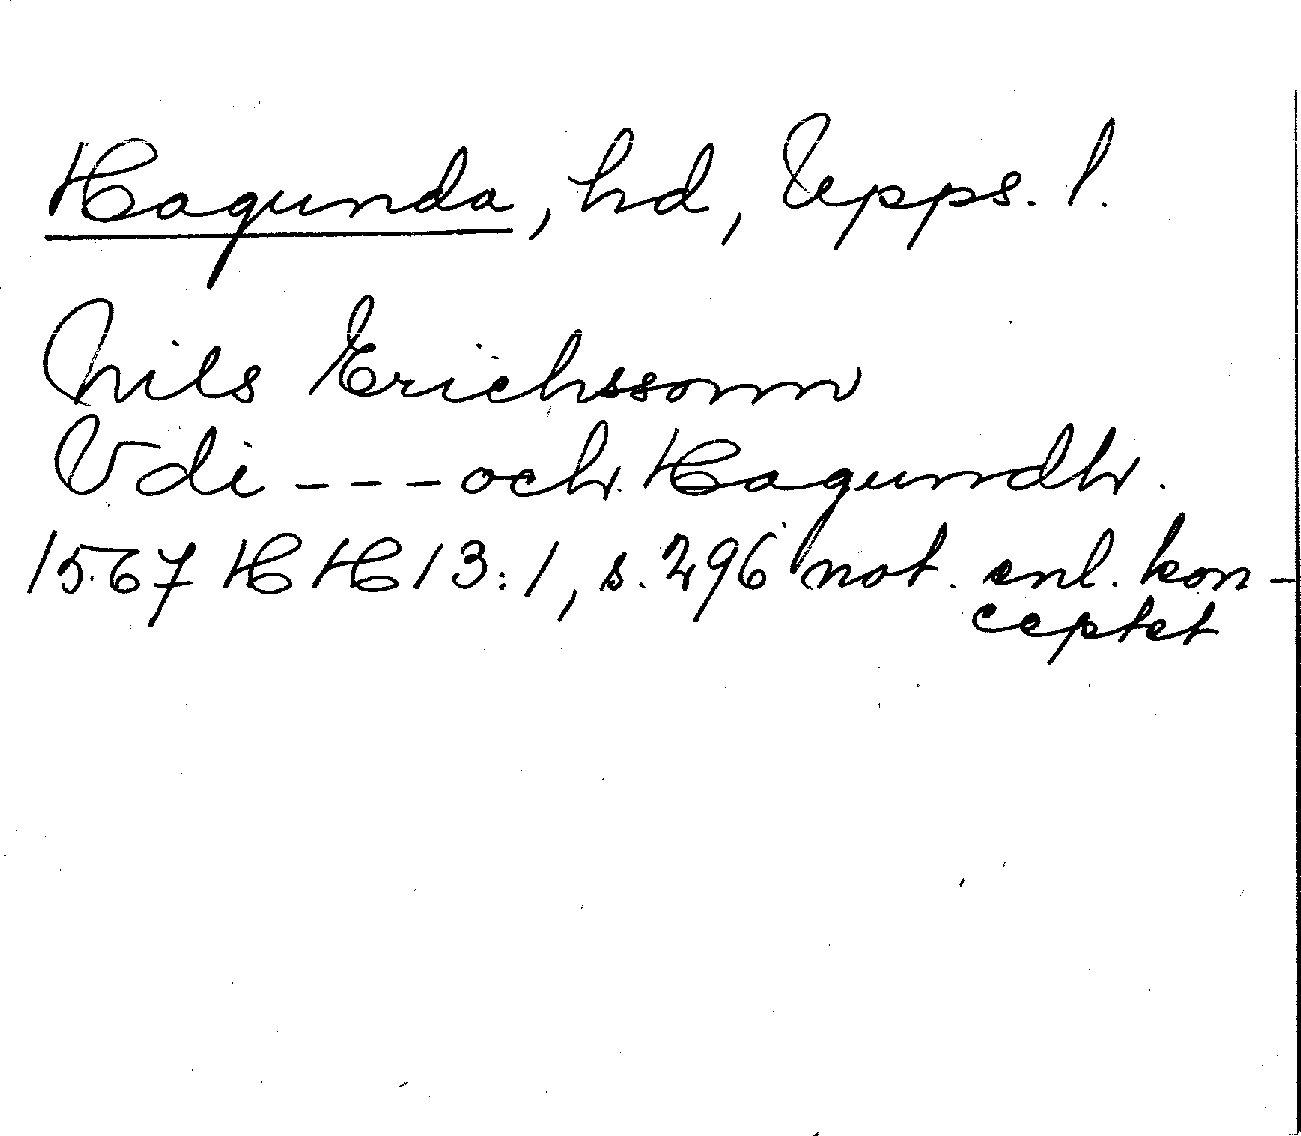 Hagunda, hd, Upps. l.
Nils Erichssonn
Vdi --- och Hagundh.
1567 HH 13:1, s. 296 not. enl. kon-
ceptet